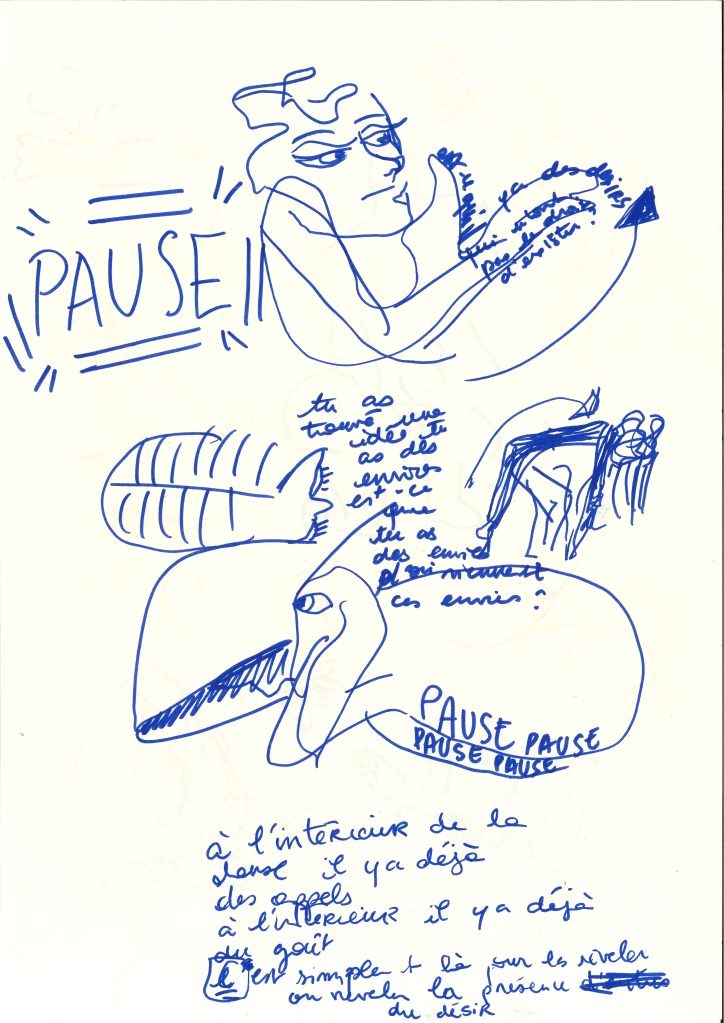 PAUSE
il y a des désirs
qui n'ont
pas le droit
d'exister.
tu as
trouvé une
idée tu
as des
envies
est-ce
que
tu as
des envies
d'où viennent
ces envies ?
PAUSE
PAUSE PAUSE
PAUSE PAUSE
à l'intérieur de la
danse il y a déjà
des appels
à l'intérieur il y a déjà
du goût
est simplet là pour les réveler
ou reveler la présence
du désir